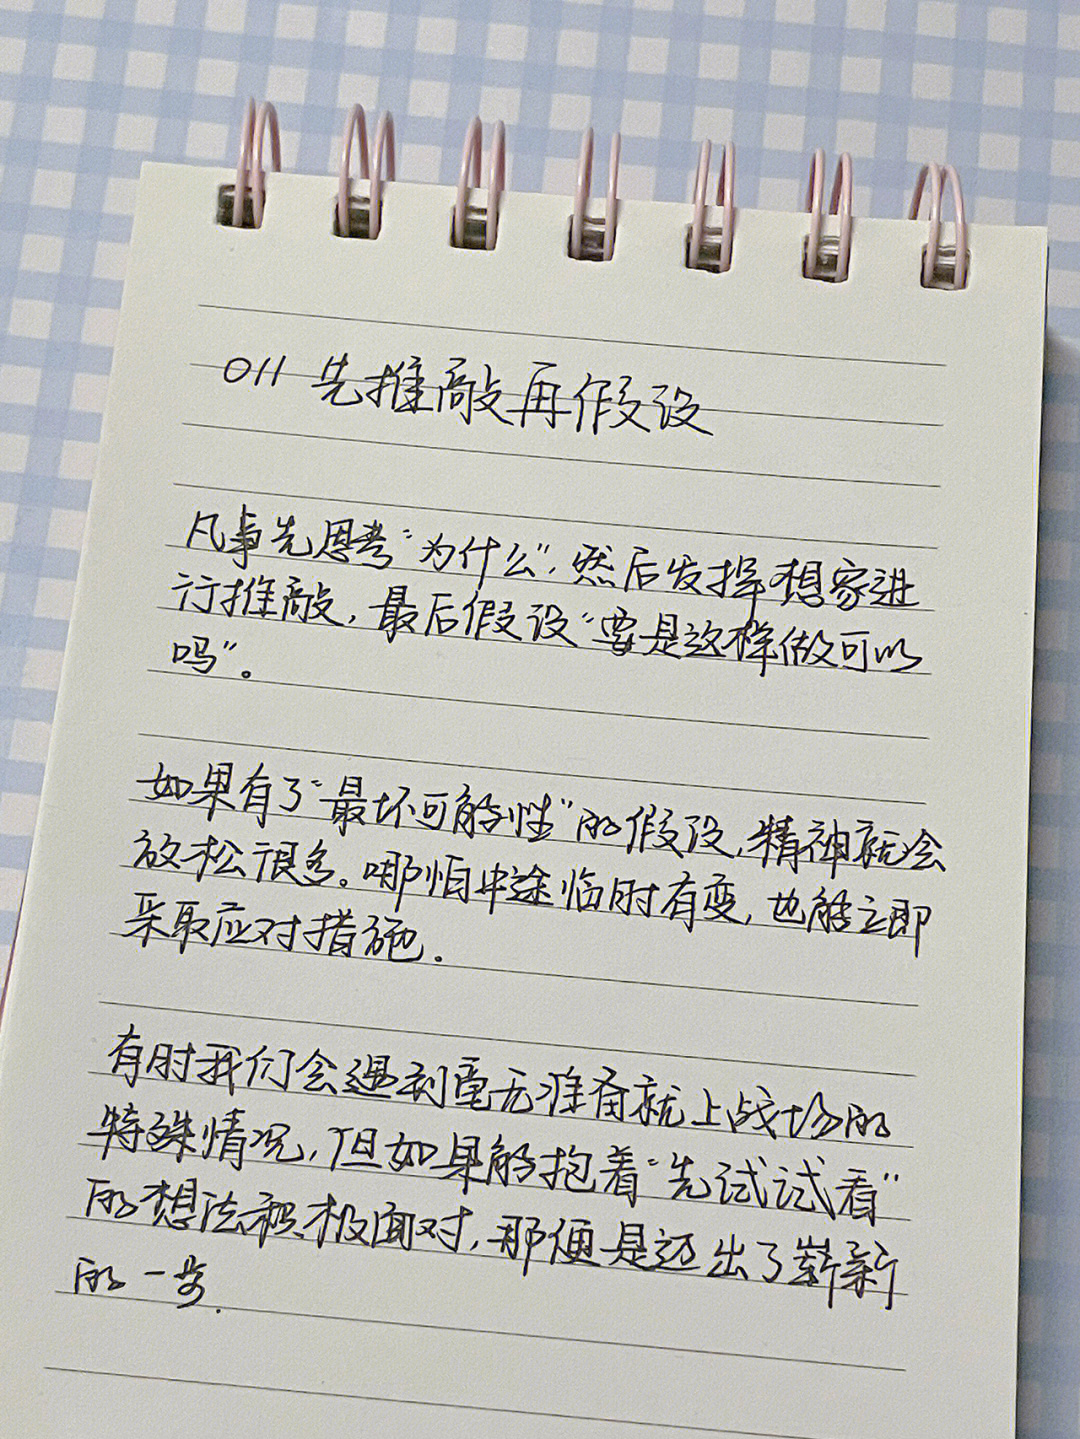 011 先推敲再假设
凡事先思考“为什么”，然后发挥想象进
行推敲，最后假设“要是这样做可以
吗”。
如果有了“最坏可能性”的假设，精神就会
放松很多。哪怕中途临时有变，也能立即
采取应对措施.
有时我们会遇到毫无准备就上战场的
特殊情况，但如果能抱着“先试试看”
的想法积极面对，那便是迈出了崭新
的一步.